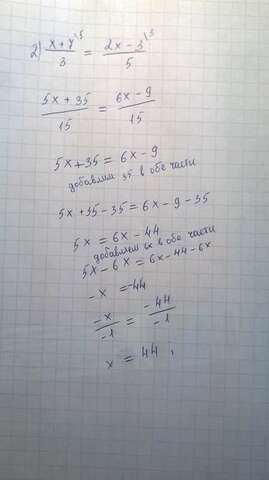 2) (x+7^5)/3 = (2x-3^3)/5
(5x+35)/15 = (6x-9)/15
5x+35=6x-9
добавляем 35 в обе части
5x+35-35=6x-9-35
5x=6x-44
добавляем 6x в обе части
5x-6x=6x-44-6x
-x=-44
-x/-1 = -44/-1
x=44,